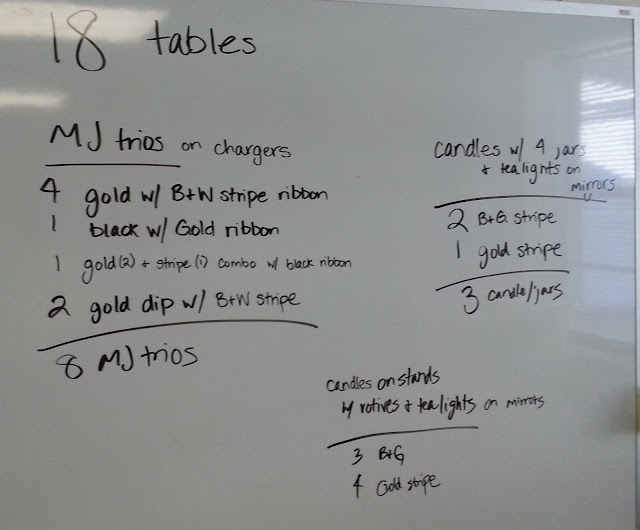 18 tables
MJ trios on chargers
4 gold w/ B+W stripe ribbon
1 black w/ Gold ribbon
1 gold(2) + stripe (1) combo w/ black ribbon
2 gold dip w/ B+W stripe
8 MJ trios
candles w/ 4 jars
+ tea lights on
mirrors
2 B+G stripe
1 gold stripe
3 candle/jars
candles on stands
w/ votives + tealights on mirrors
3 B+G
4 Gold stripe